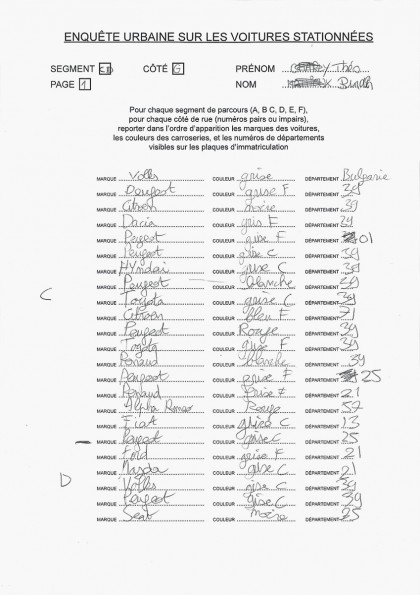 ENQUÊTE URBAINE SUR LES VOITURES STATIONNÉES
SEGMENT CD CÔTÉ G PRÉNOM Théo
PAGE 1 NOM
Pour chaque segment de parcours (A, B C, D, E, F),
pour chaque côté de rue (numéros pairs ou impairs),
reporter dans l'ordre d'apparition les marques des voitures,
les couleurs des carroseries, et les numéros de départements
visibles sur les plaques d'immatriculation
MARQUE Volks COULEUR grise DÉPARTEMENT Bulgarie
MARQUE Peugeot COULEUR grise F DÉPARTEMENT 39
MARQUE Citroën COULEUR noire DÉPARTEMENT 39
MARQUE Dacia COULEUR gris F DÉPARTEMENT 39
MARQUE Pegeot COULEUR grise F DÉPARTEMENT 01
MARQUE Peugeot COULEUR grise C DÉPARTEMENT 39
MARQUE Hyndai COULEUR grise C DÉPARTEMENT 39
MARQUE Peugeot COULEUR blanche DÉPARTEMENT 39
C MARQUE Toyota COULEUR grise C DÉPARTEMENT 39
MARQUE Citroën COULEUR bleu F DÉPARTEMENT 71
MARQUE Peugeot COULEUR Rouge DÉPARTEMENT 39
MARQUE Toyota COULEUR grise F DÉPARTEMENT 39
MARQUE Renaud COULEUR blanche DÉPARTEMENT 39
MARQUE Peugeot COULEUR grise F DÉPARTEMENT 25
MARQUE Renaud COULEUR Grise F DÉPARTEMENT 21
MARQUE Alpha Romeo COULEUR Rouge DÉPARTEMENT 57
MARQUE Fiat COULEUR grise C DÉPARTEMENT 13
MARQUE Pegeot COULEUR grise C DÉPARTEMENT 25
MARQUE Ford COULEUR grise F DÉPARTEMENT 21
D MARQUE Mazda COULEUR grise C DÉPARTEMENT 21
MARQUE Volks COULEUR grise C DÉPARTEMENT 39
MARQUE Peugeot COULEUR grise C DÉPARTEMENT 39
MARQUE Seat COULEUR noire DÉPARTEMENT 25